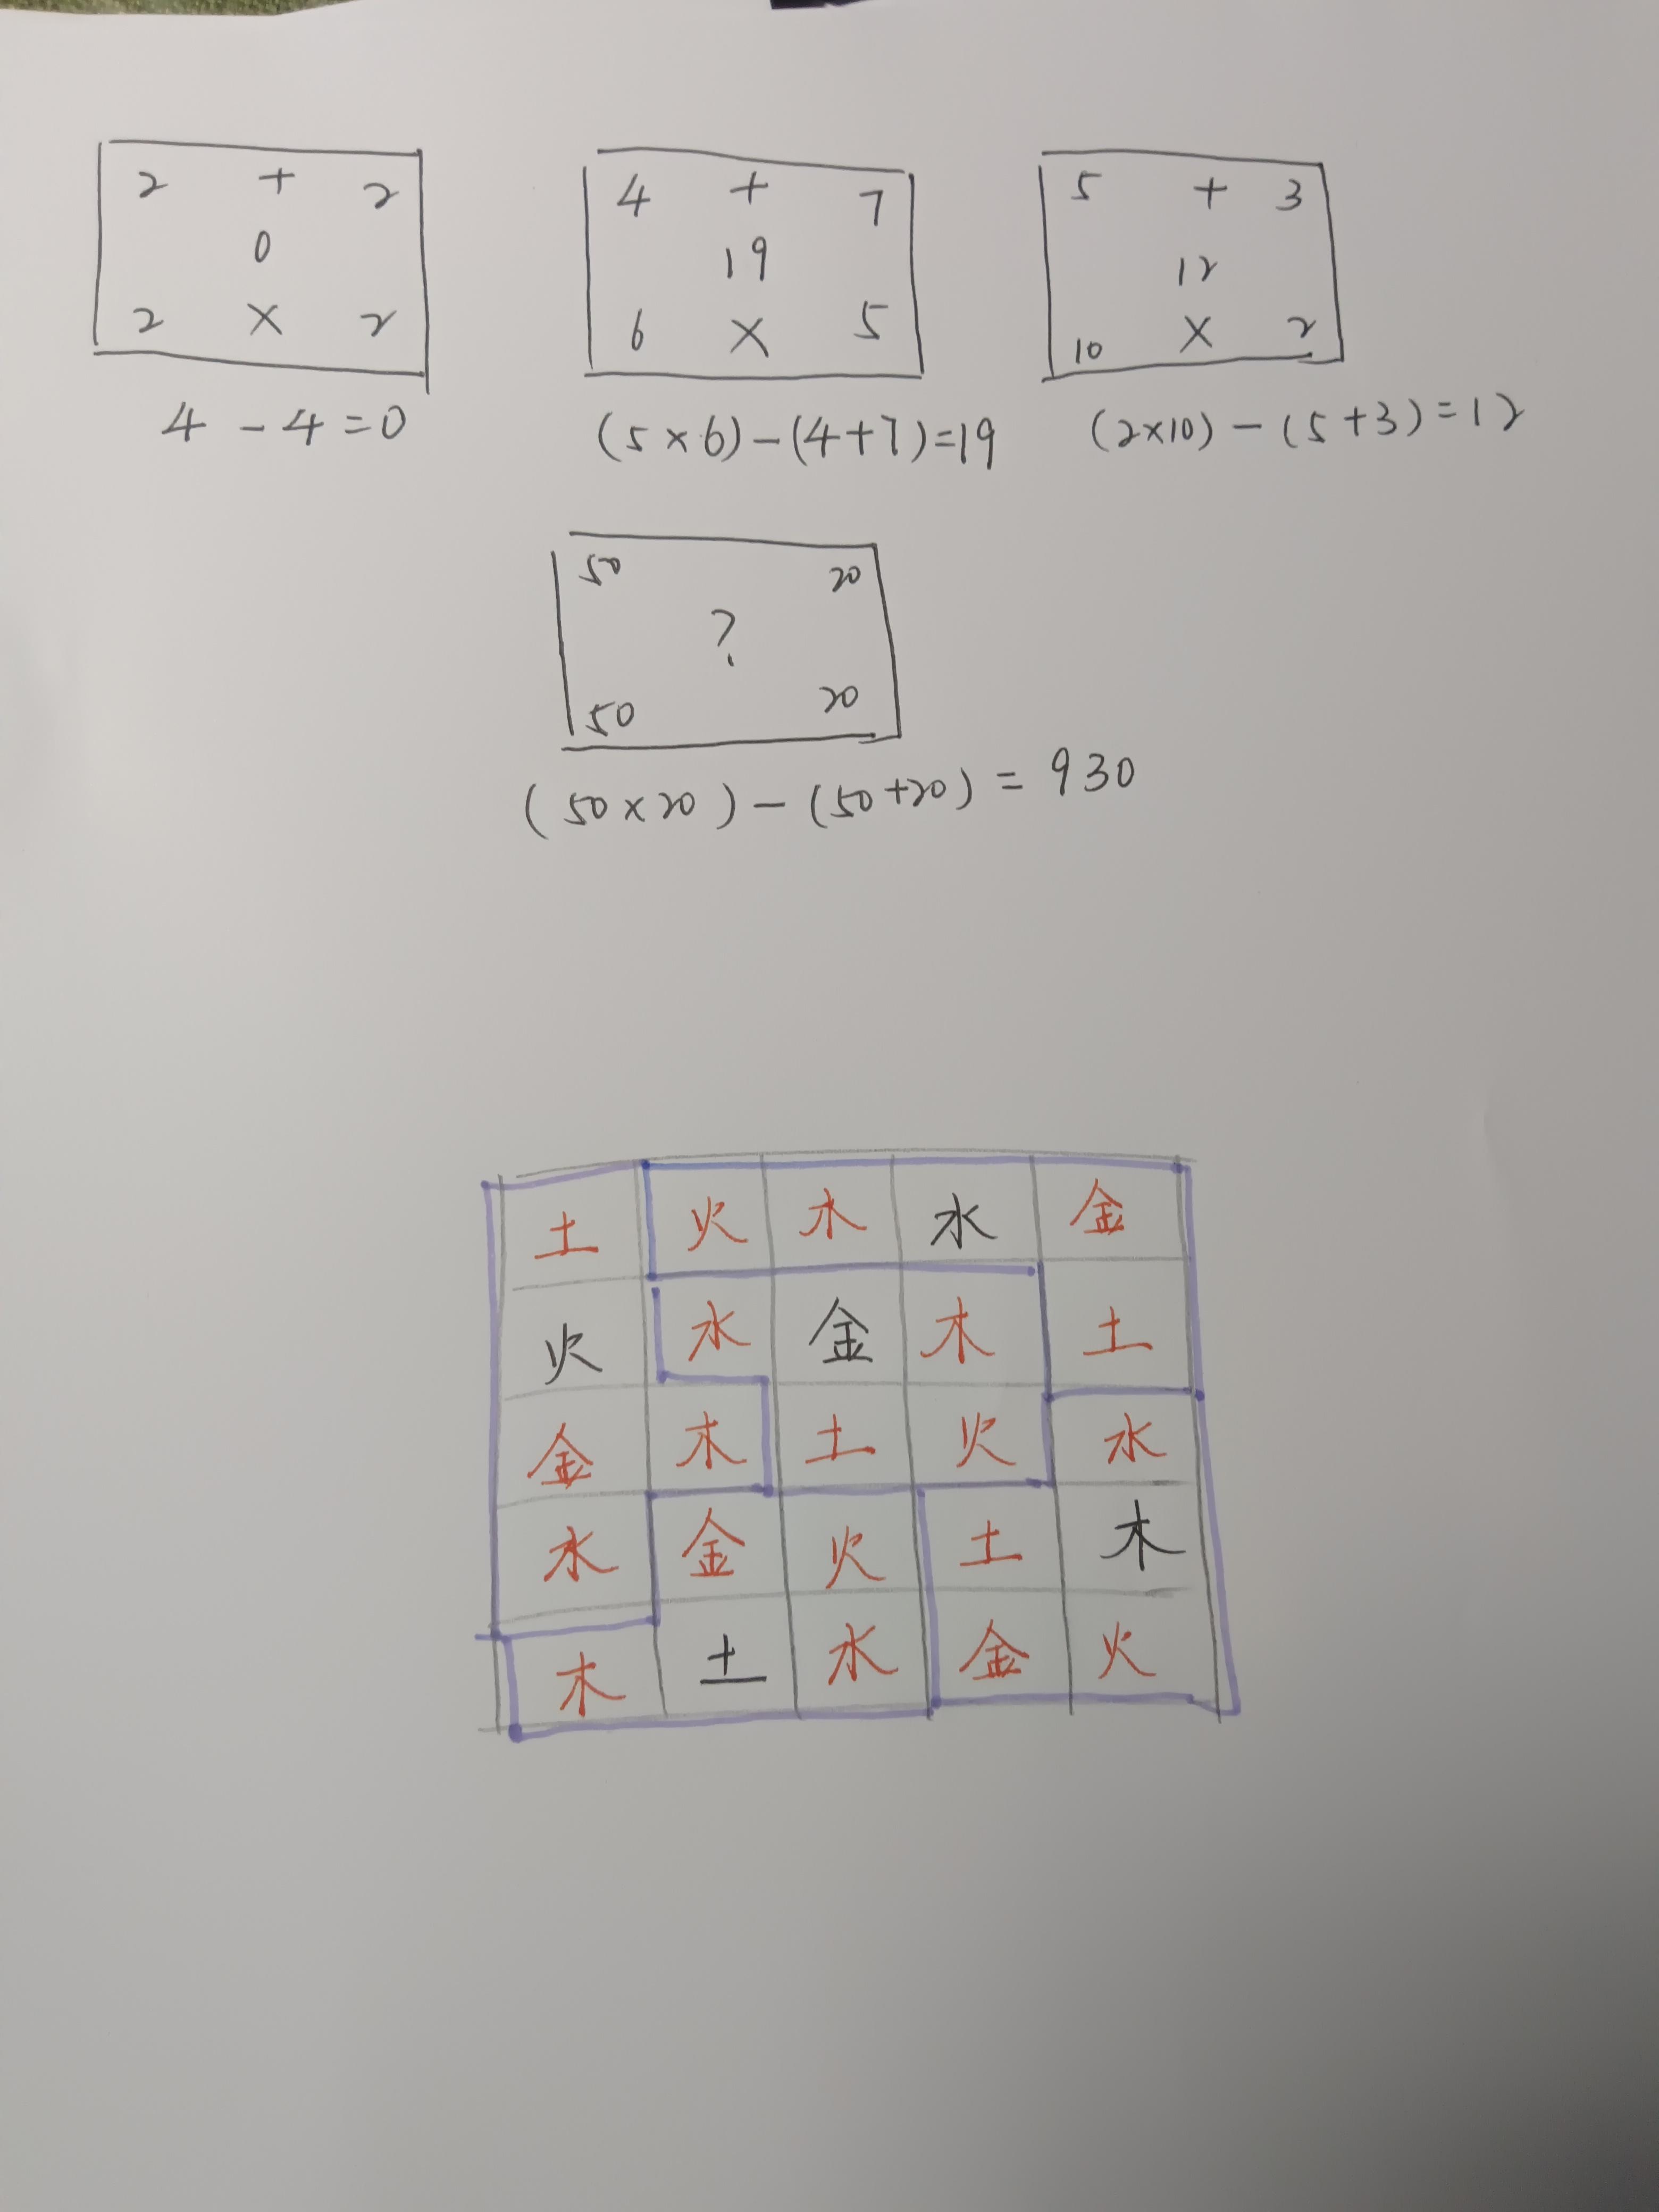 2 + 2
0
2 × 2
4 - 4 = 0
4 + 7
19
6 × 5
(5×6)-(4+7)=19
5 + 3
12
10 × 2
(2×10)-(5+3)=12
50 20
?
50 20
(50×20)-(50+20)=930
土 火 木 水 金
火 水 金 木 土
金 木 土 火 水
水 金 火 土 木
木 土 水 金 火